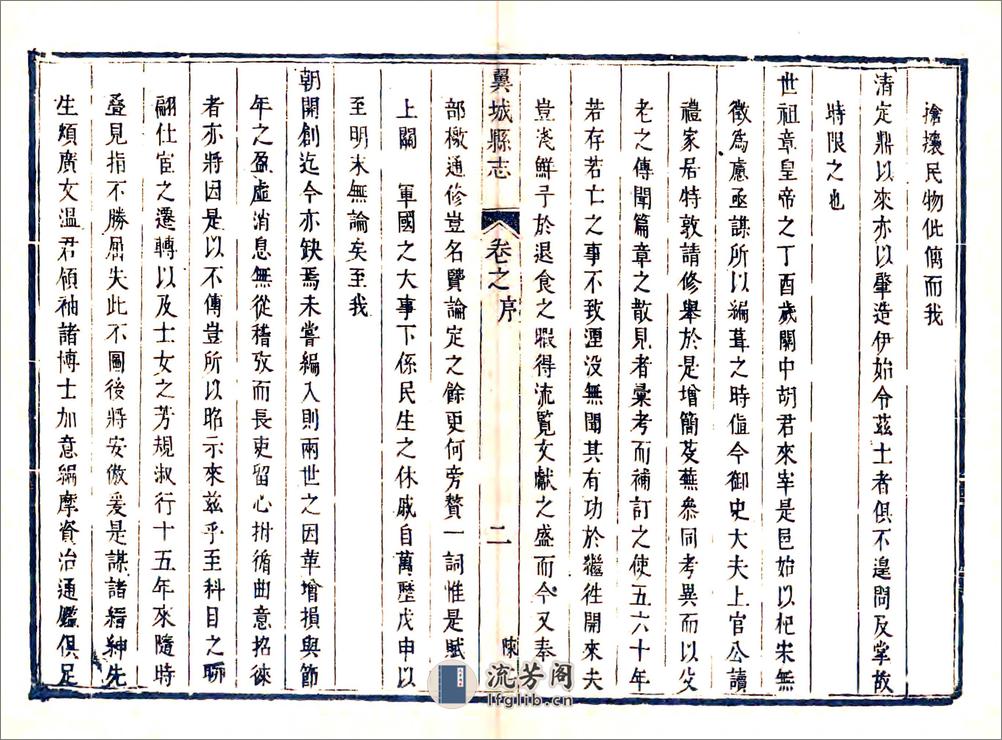 搶攘民物仳傷而我
清定鼎以來亦以肇造伊始令茲土者俱不遑問及掌故
時限之也
世祖章皇帝之丁酉歲關中胡君來宰是邑始以杞宋無
徵為慮亟謀所以編葺之時值今御史大夫上官公讀
禮家居特敦請修舉於是增簡芟蕪叅同考異而以父
老之傳聞篇章之散見者彙考而補訂之使五六十年
若存若亡之事不致湮没無聞其有功於繼徃開來夫
豈淺鮮予於退食之暇得流覧文獻之盛而今又奉
翼城縣志
卷之序
二
陳
部檄通修豈名賢論定之餘更何旁贅一詞惟是賦
上關 軍國之大事下係民生之休戚自萬歷戊申以
至明末無論矣至我
朝開創迄今亦缺焉未嘗編入則兩世之因革增損與節
年之盈虛消息無從稽攷而長吏留心拊循曲意招徠
者亦將因是以不傳豈所以昭示來茲乎至科目之聯
翩仕宦之遷轉以及士女之芳規淑行十五年來隨時
疊見指不勝屈失此不圖後將安倣爰是謀諸縉紳先
生頖廣文溫君領袖諸博士加意編摩資治通鑑俱足
流芳阁
lfglib.cn